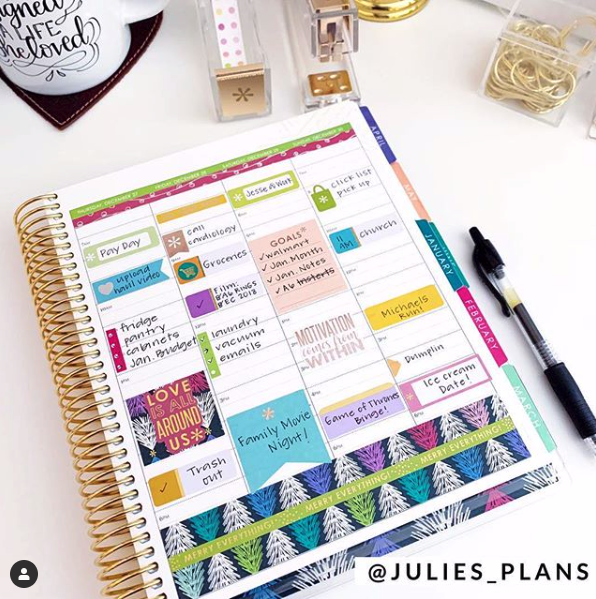 A LIFE
THURSDAY, DECEMBER 27
FRIDAY, DECEMBER 28
SATURDAY, DECEMBER 29
SUNDAY, DECEMBER 30
APRIL
MAY
JANUARY
FEBRUARY
MARCH
Pay Day
upload
haul video
fridge
pantry
cabinets
Jan. Budget
LOVE
IS ALL
AROUND
US
Trash
out
call
cardiology
Groceries
laundry
vacuum
emails
Family Movie
Night!
GOALS
walmart
Jan Month
Jan. Notes
MOTIVATION
comes from
WITHIN
Game of Thrones
Binge!
click list
pick up
11
AM
Church
Michaels
Run!
Dumplin
Ice cream
Date!
MERRY EVERYTHING!
MERRY EVERYTHING!
MERRY EVERYTHING!
@JULIES_PLANS